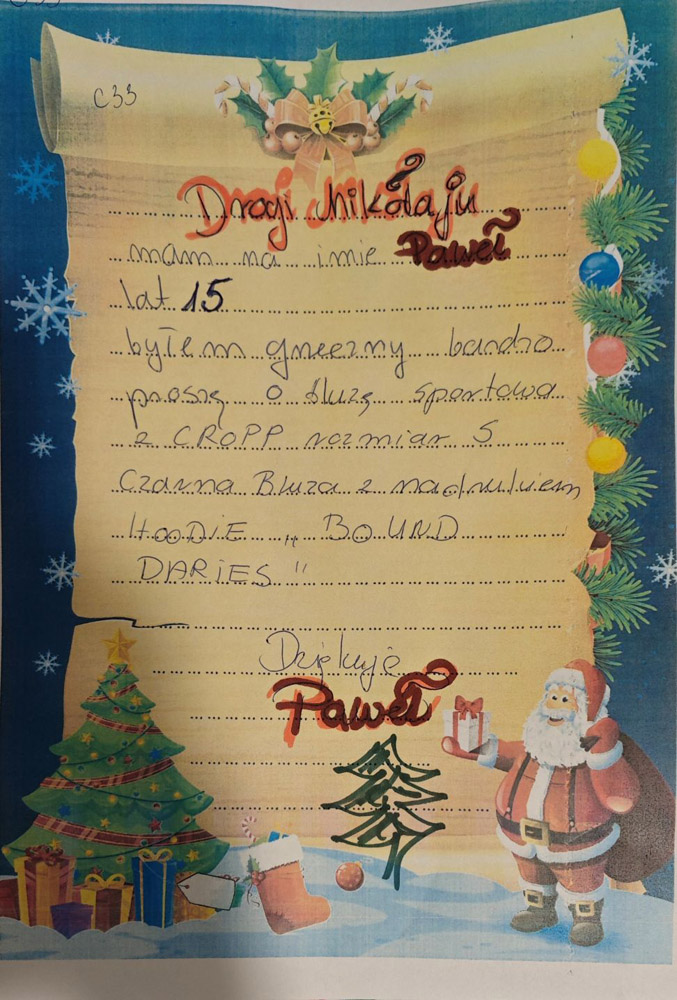 C33
Drogi Mikołaju
mam na imie Paweł
lat 15
byłem gneezny bardzo
proszę o bluzę sportowa
z CROPP rozmiar S
Czarna Bluza z nadrukiem
HOODIE „ BOUND
DARIES "
Dziękuję
Paweł